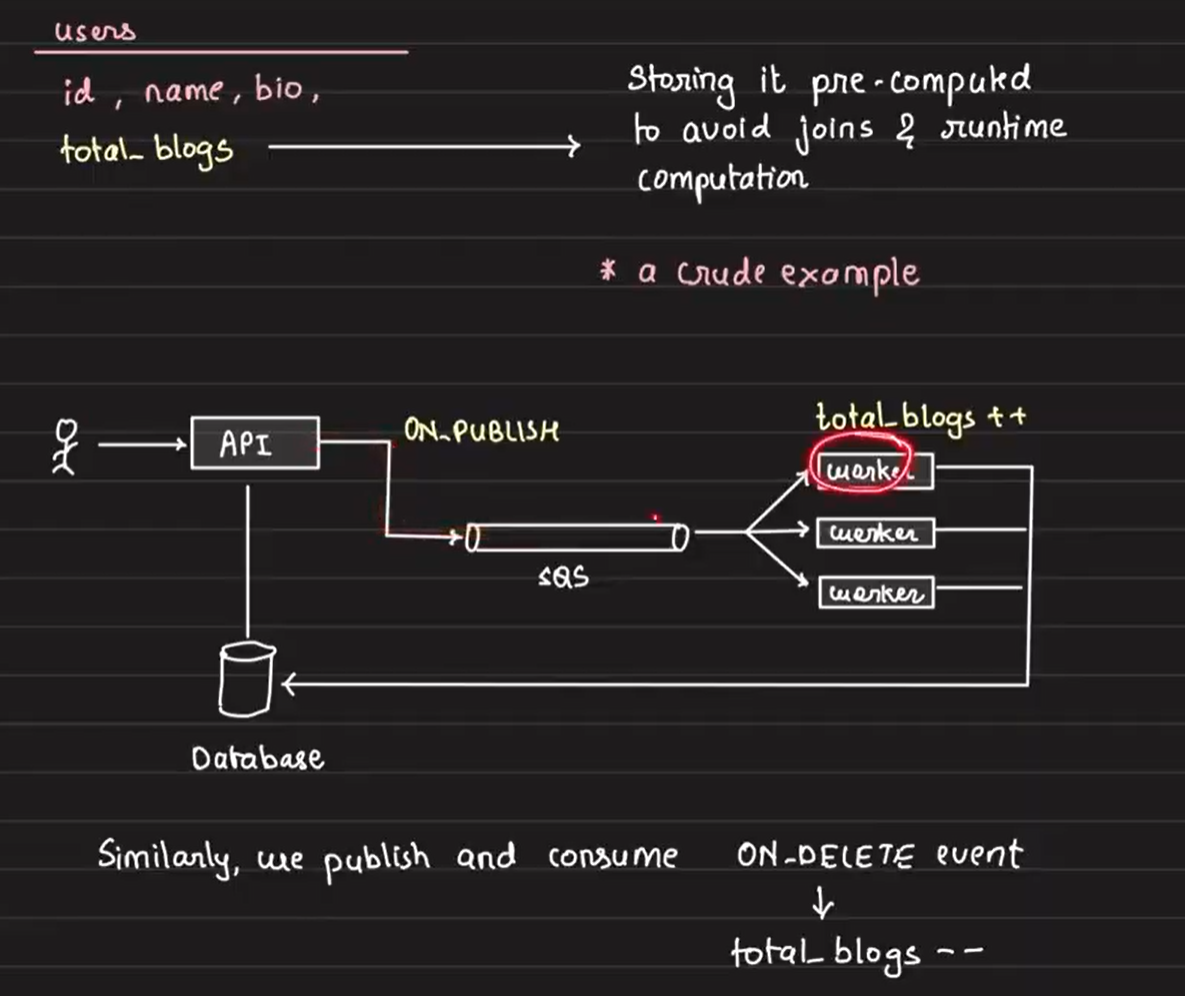 users
id, name, bio,
total_blogs
Storing it pre-computed
to avoid joins & runtime
computation
* a crude example
API
ON_PUBLISH
SQS
total_blogs ++
worker
worker
worker
Database
Similarly, we publish and consume ON_DELETE event
total_blogs --